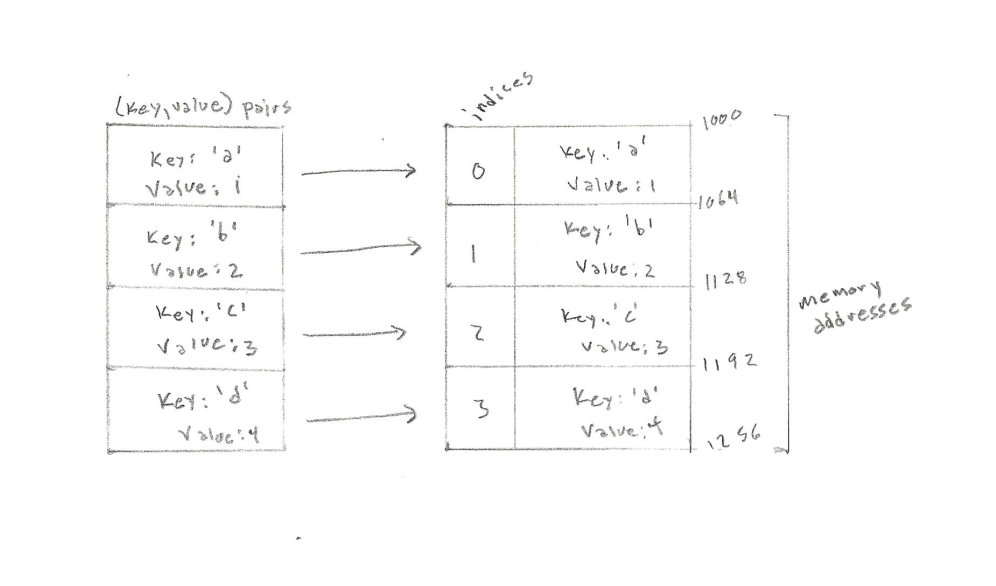 (Key, value) pairs
Key: 'a'
Value: 1
Key: 'b'
Value: 2
Key: 'c'
Value: 3
Key: 'd'
Value: 4
indices
0
Key: 'a'
Value: 1
1
Key: 'b'
Value: 2
2
Key: 'c'
Value: 3
3
Key: 'd'
Value: 4
1000
1064
1128
1192
1256
memory
addresses